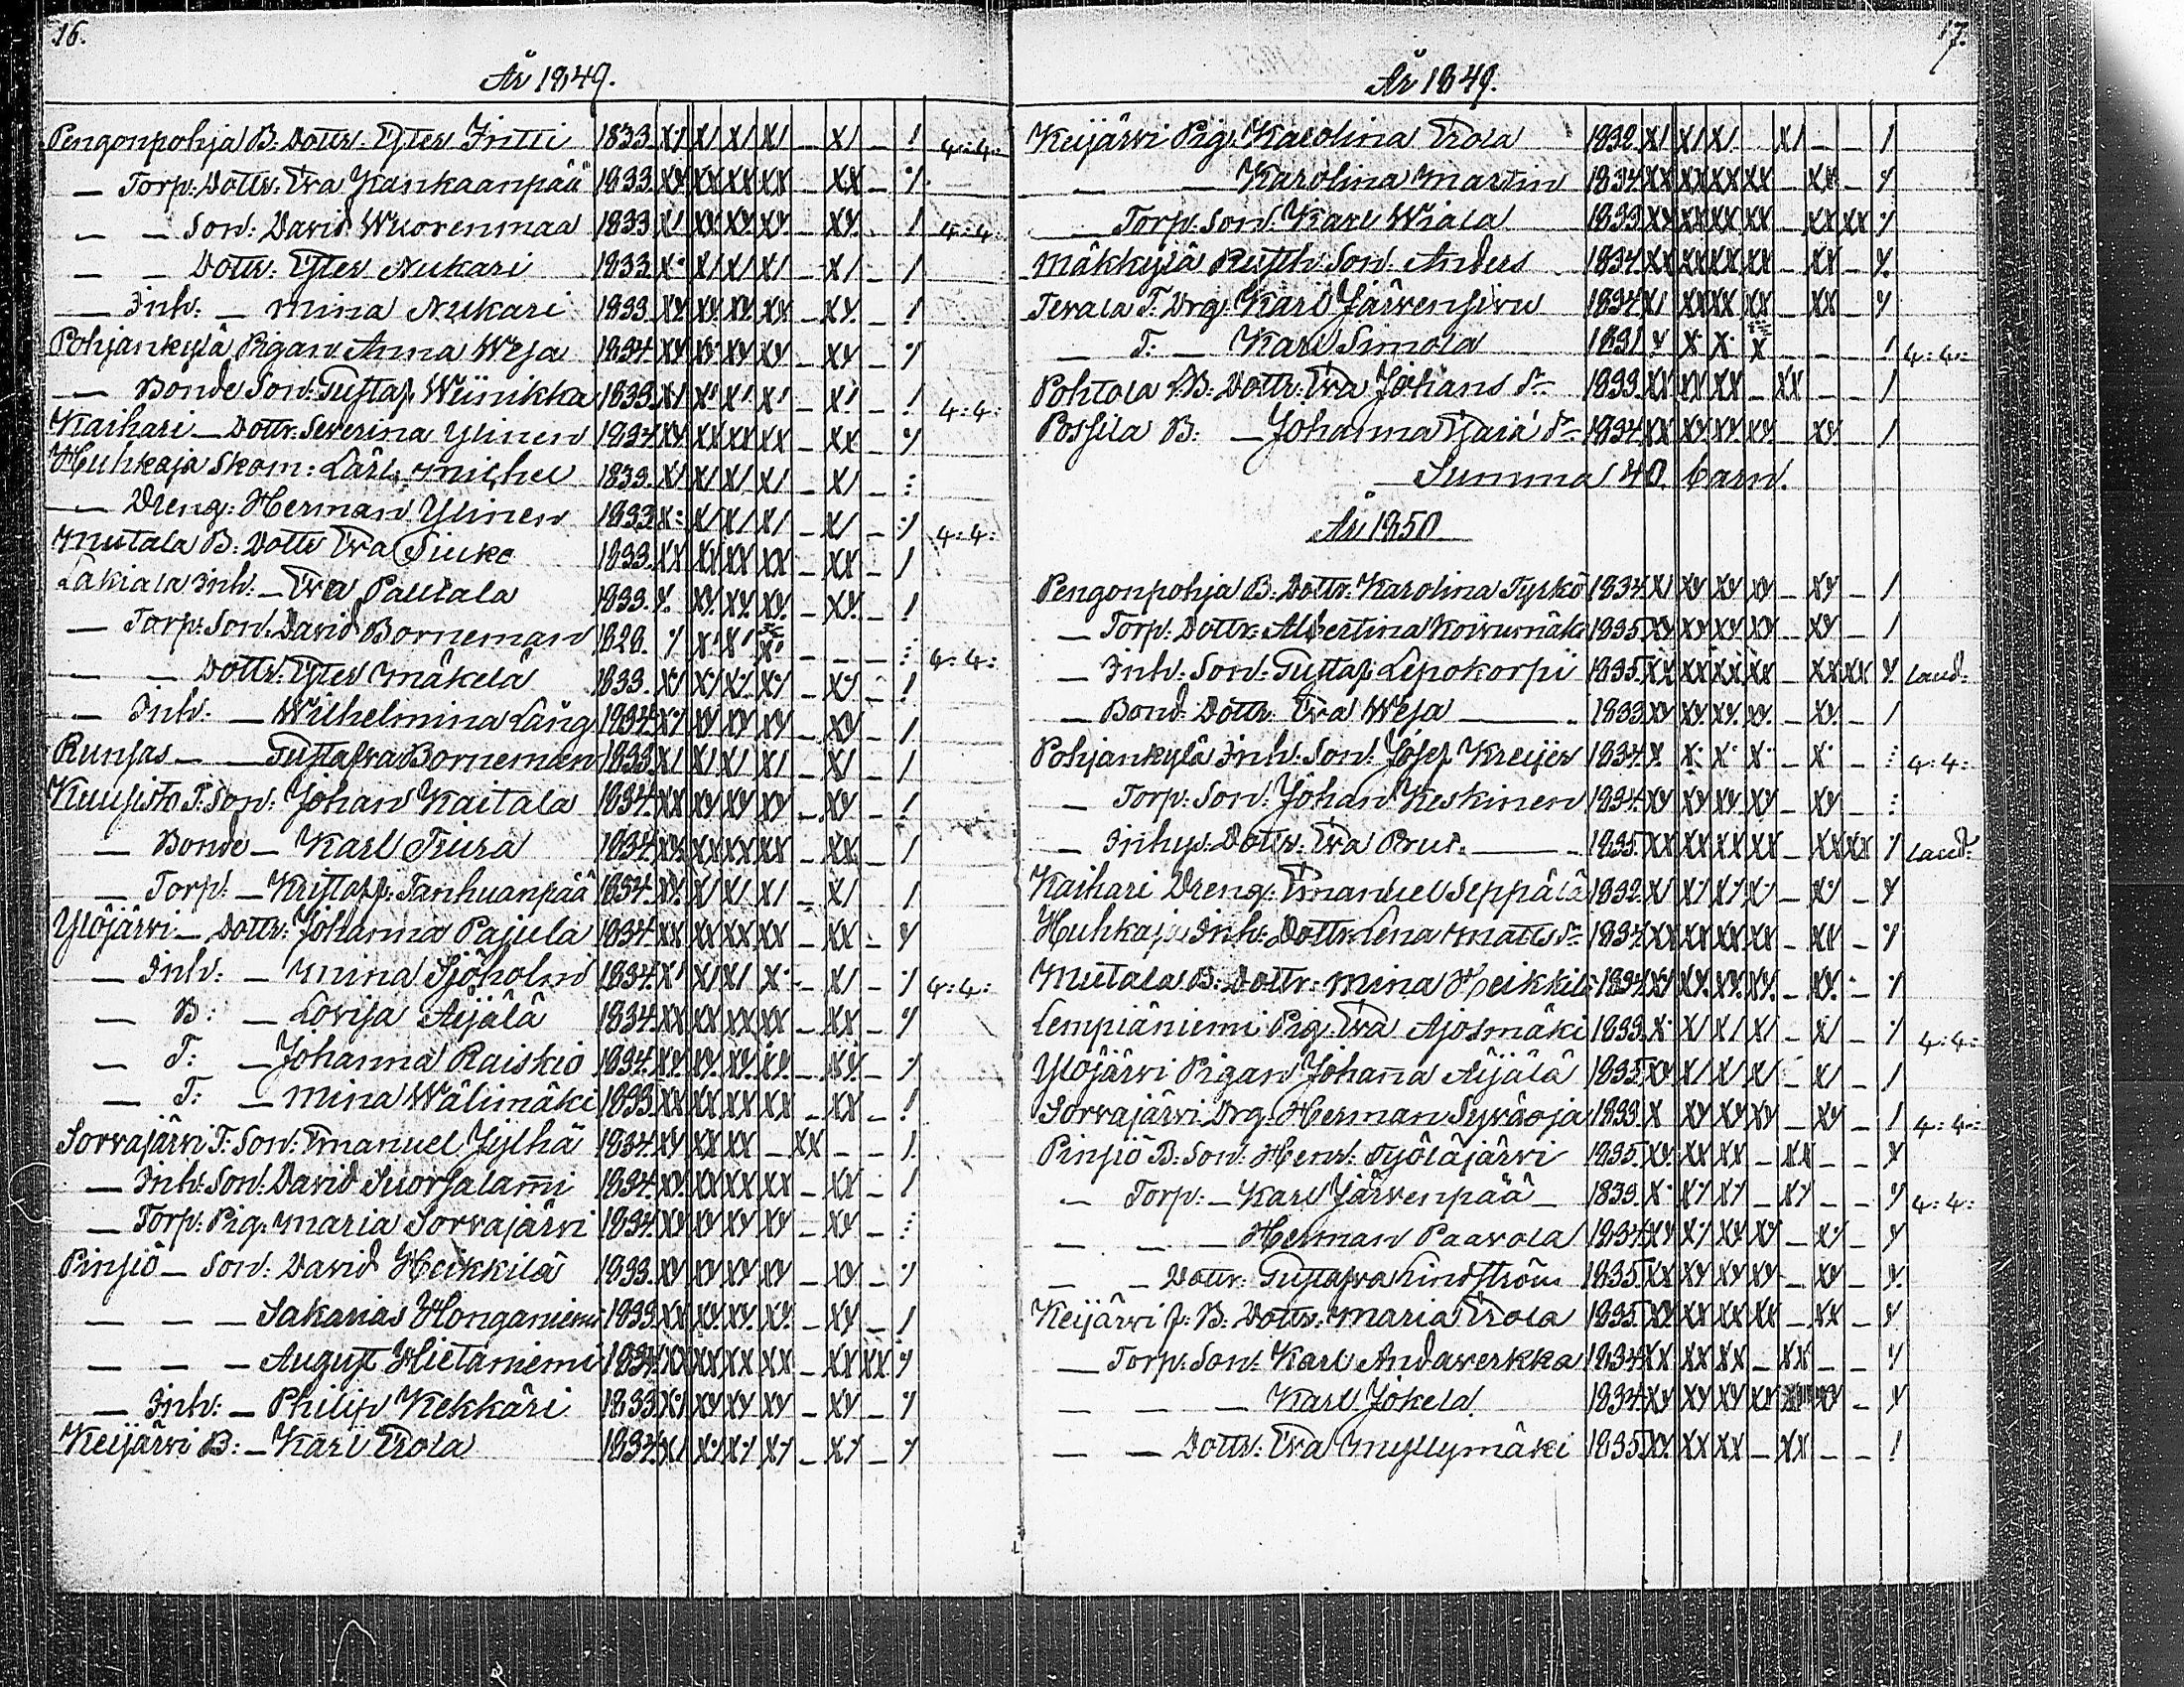 16.
År 1849.
Pengonpohja B: Dottr: Ester Fritti 1833. X/ X/ X/ X/ - X/ - / 4:4:
— Torp: Dottr: Eva Kankaanpää 1833. XX XX XX XX - XX - y
— — Son: David Wuorenmaa 1833 X/ Xy Xy Xy - Xy - / 4:4:
— — Dottr: Ester Nukari 1833. X· X/ X/ X/ - X/ - /
— Inh: — Mina Nukari 1833. Xy Xy Xy Xy - Xy - /
Pohjankylä Pigan Anna Weja 1834. Xy Xy Xy Xy - Xy - y
— Bonde Son: Gustaf Wiinikka 1833. X/ X/ X/ X/ - X/ - / 4:4:
Kaihari — Dottr: Severina Ylinen 1834. Xy XX XX XX - XX - y
Huhkaja Skom: Lärl: Michel 1833. X/ X/ X/ X/ - X/ - :
— Dreng: Herman Ylinen 1833. X· X/ X/ X/ - X/ - ·/ 4:4:
Mutala B: Dottr Eva Siuko 1833. XX XX XX XX - XX - /
Lakiala Inh: — Eva Pautala 1833. y Xy Xy Xy - Xy - /
— Torp: Son: David Borneman 1828. ·/ X/ X/ X/ - - - : 4:4:
— — Dottr: Ester Mäkelä 1833. X/ X/ X/ X/ - X/ - /
— Inh: — Wilhelmina Lång 1834. X/ Xy Xy Xy - Xy - /
Runsas — — Gustafva Borneman 1833. X/ X/ X/ X/ - X/ - /
Kuusisto T: Son: Johan Kaitala 1834. XX Xy Xy Xy - Xy - /
— Bonde — Karl Tiura 1834. XX XX XX XX - XX - /
— Torp: — Kristoff: Tanhuanpää 1834. XX X/ X/ X/ - X/ /
Ylöjärvi — Dottr: Johanna Pajula 1834. XX XX XX XX - XX - y
— Inh: — Mina Sjöholm 1834. X/ X/ X/ X· - X/ - ·/ 4:4:
— B: — Lovisa Äijälä 1834. XX XX XX XX - XX - y
— T: — Johanna Raiskio 1834. Xy Xy Xy Xy - Xy - ·/
— T: — Mina Wälimäki 1833. XX XX XX XX - XX - /
Sorvajärvi T: Son: Emanuel Jylhä 1834. Xy XX XX - XX - - /
— Inh: Son: David Suorsalami 1834. Xy XX XX XX - XX - /
— Torp: Pig: Maria Sorvajärvi 1834. Xy Xy Xy Xy - Xy - :
Pinsiö — Son: David Heikkilä 1833. Xy Xy Xy Xy - Xy - ·/
— — — Sakarias Honganiemi 1833. XX Xy Xy Xy - Xy - /
— — — August Hietaniemi 1834. XX XX XX XX - XX XX y
— Inh: — Philip Kekkäri 1833. X/ Xy Xy Xy - Xy - y
Keijärvi B: — Karl Erola 1834. X/ X/ X/ X/ - X/ - y
17.
År 1849.
Keijärvi Pig: Karolina Erola 1832. X/ X/ X/ X/ - - /
— — Karolina Martin 1834. XX XX XX XX - XX - y
— Torp: Son: Karl Wiala 1833. Xy XX XX XX - XX XX y
Mäkkylä Rusth: Son: Anders 1834. XX XX XX XX - XX - y
Terala T: Drg: Karl Järvensivu 1834. X/ XX XX XX - XX - y
— T: — Karl Simola 1831. y X· X· X - - - / 4:4:
Pohtola B: Dottr: Eva Johans dr 1833. XX XX XX - XX - - /
Possila B: — Johanna 1834. XX Xy Xy Xy - Xy - /
Summa 40. barn.
År 1850
Pengonpohja B: Dottr: Karolina Tyrkö 1834. X/ Xy Xy Xy - Xy - /
— Torp: Dottr: Albertina Koivumäki 1835. Xy Xy Xy Xy - Xy - /
— Inh: Son: Gustaf Lepokorpi 1835. XX XX XX XX - XX XX y Laud:
— Bond: Dottr: Eva Weja — 1833. Xy Xy Xy Xy - Xy - /
Pohjankylä Inh: Son: Josef Kreijer 1834. X X· X· X· - X· - : 4:4:
— Torp: Son: Johan Keskinen 1834. Xy Xy Xy Xy - Xy - :
— Inhys: Dottr: Eva Brut. — 1835. XX XX XX XX - XX XX ·/ Laud:
Kaihari Dreng: Emanuel Seppälä 1832. X/ X/ X/ X/ - X/ - y
Huhkaja Inh: Dottr: Lena Matts dr 1834. XX XX XX XX - XX - y
Mutala B: Dottr: Mina Heikkilä 1834. Xy Xy Xy Xy - Xy - y
Lempiäniemi Pig: Eva Ajosmäki 1833. X· X/ X/ X/ - X/ - ·/ 4:4:
Ylöjärvi Pigan Johana Äijälä 1835. Xy X/ X/ X/ - X/ - /
Sorvajärvi Drg: Herman Syväoja 1833. X Xy Xy Xy - Xy - / 4:4:
Pinsiö B: Son: Henr: Työläjärvi 1835. Xy XX XX - XX - - y
— Torp: — Karl Järvenpää — 1833. X· X/ X/ - X/ - - y 4:4:
— — — Herman Paavola 1834. Xy X/ Xy Xy - X/ - y
— — Dottr: Gustafva Lindström 1835. XX Xy Xy Xy - Xy - y
Keijärvi B: Dottr: Maria Erola 1835. Xy XX XX XX - XX - y
— Torp: Son: Karl Andaverkka 1834. XX XX XX - XX - - y
— — — Karl Jokela 1834. Xy Xy Xy Xy Xy - y
— — Dottr: Eva Myllymäki 1835. XX XX XX - XX - - /